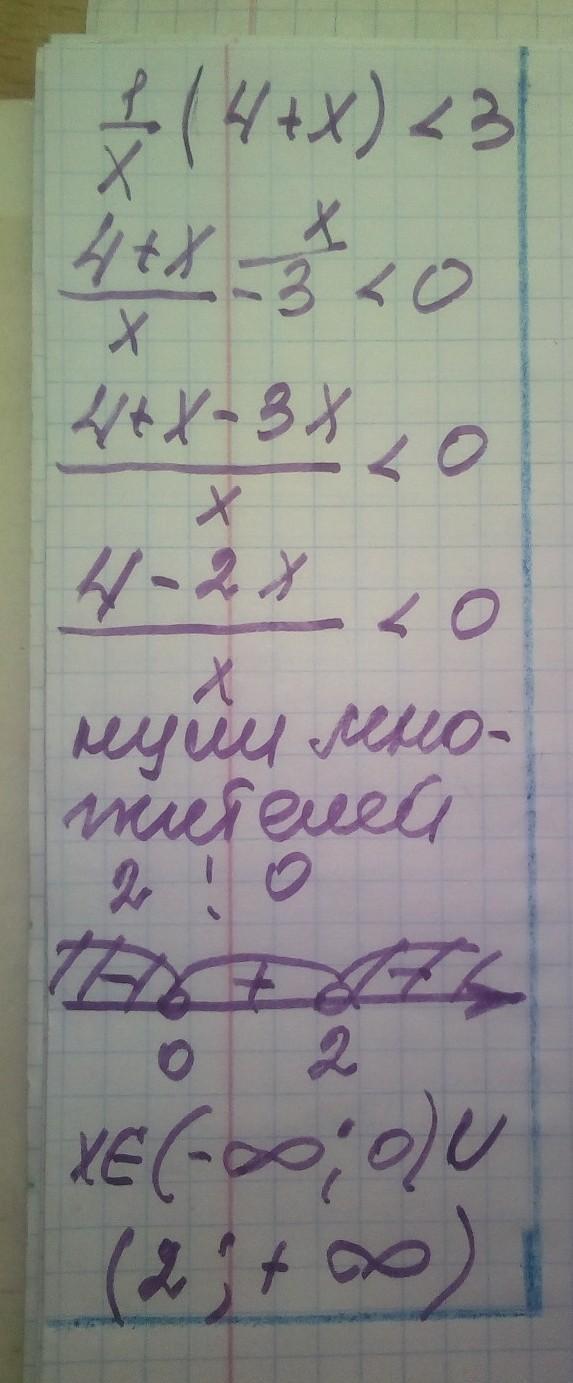 1/x (4+x) < 3
(4+x)/x - 3^x/ < 0
(4+x-3x)/x < 0
(4-2x)/x < 0
нули мно-
жителей
2 ; 0
- + -
0 2
x∈(-∞; 0)∪
(2; +∞)